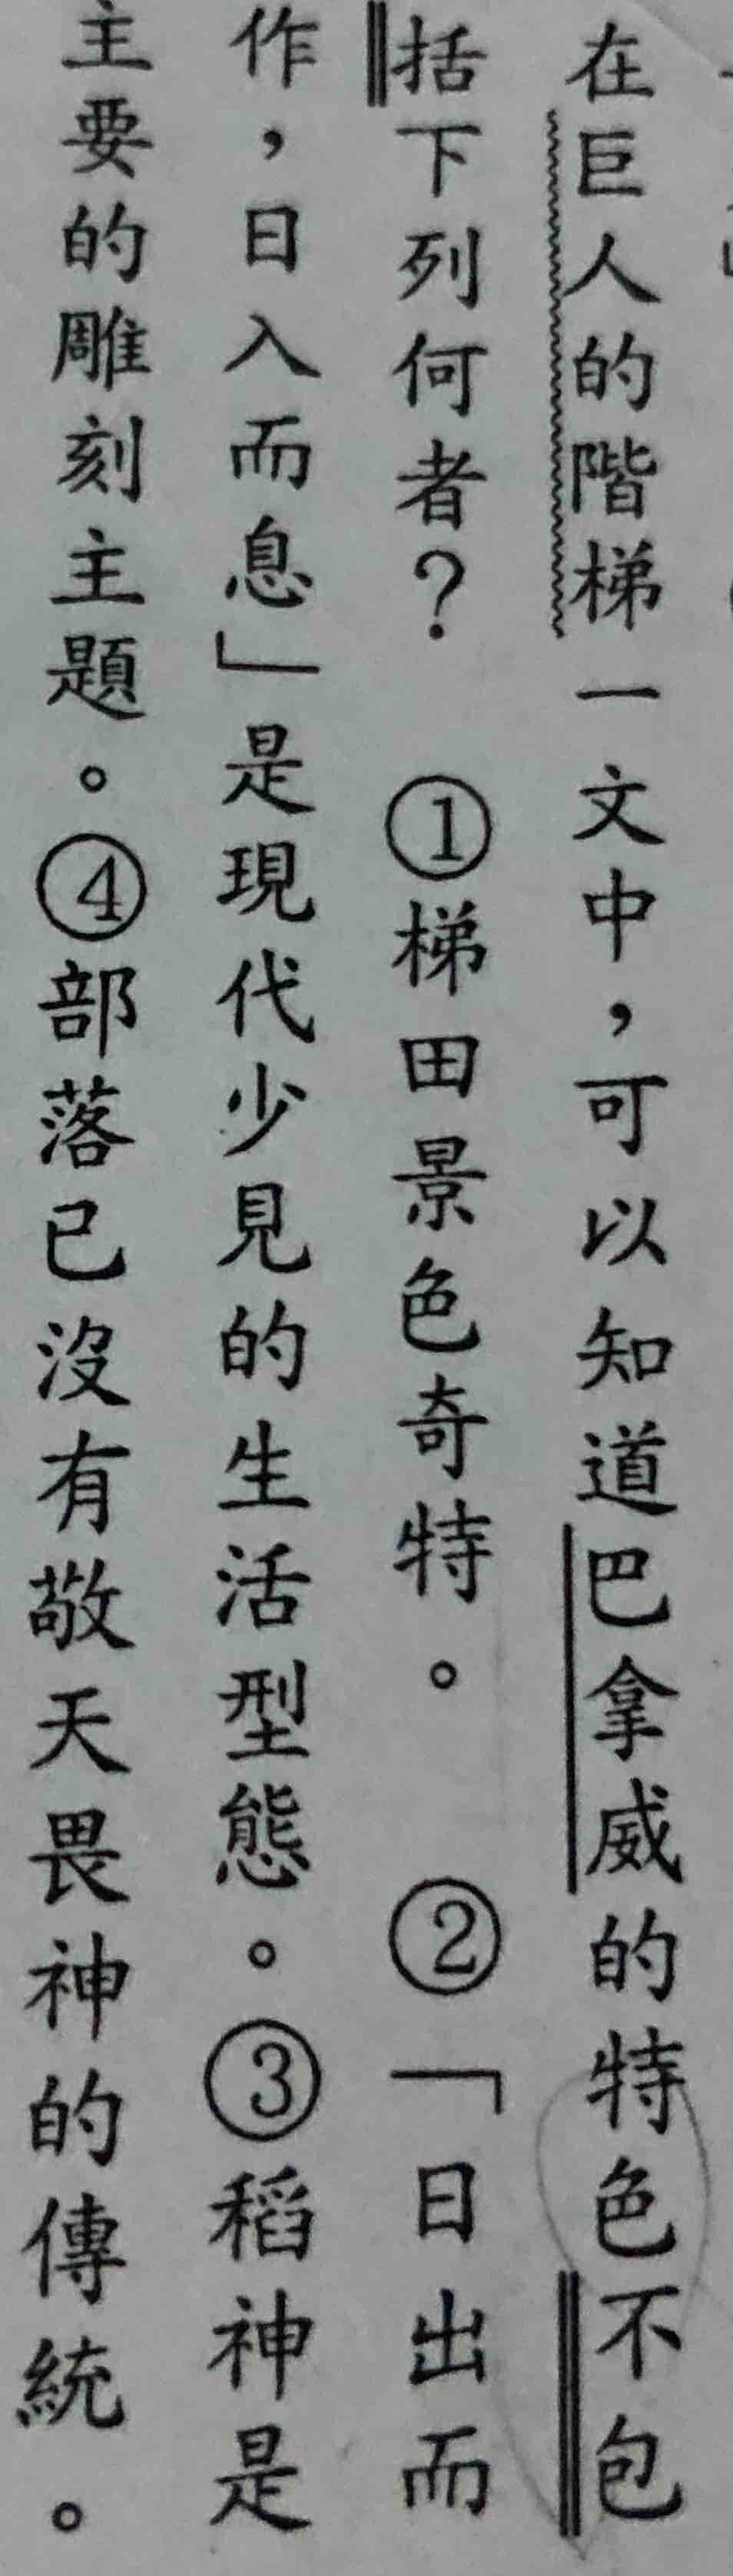 在巨人的階梯一文中，可以知道巴拿威的特色不包
括下列何者？　①梯田景色奇特。　②「日出而
作，日入而息」是現代少見的生活型態。③稻神是
主要的雕刻主題。④部落已沒有敬天畏神的傳統。